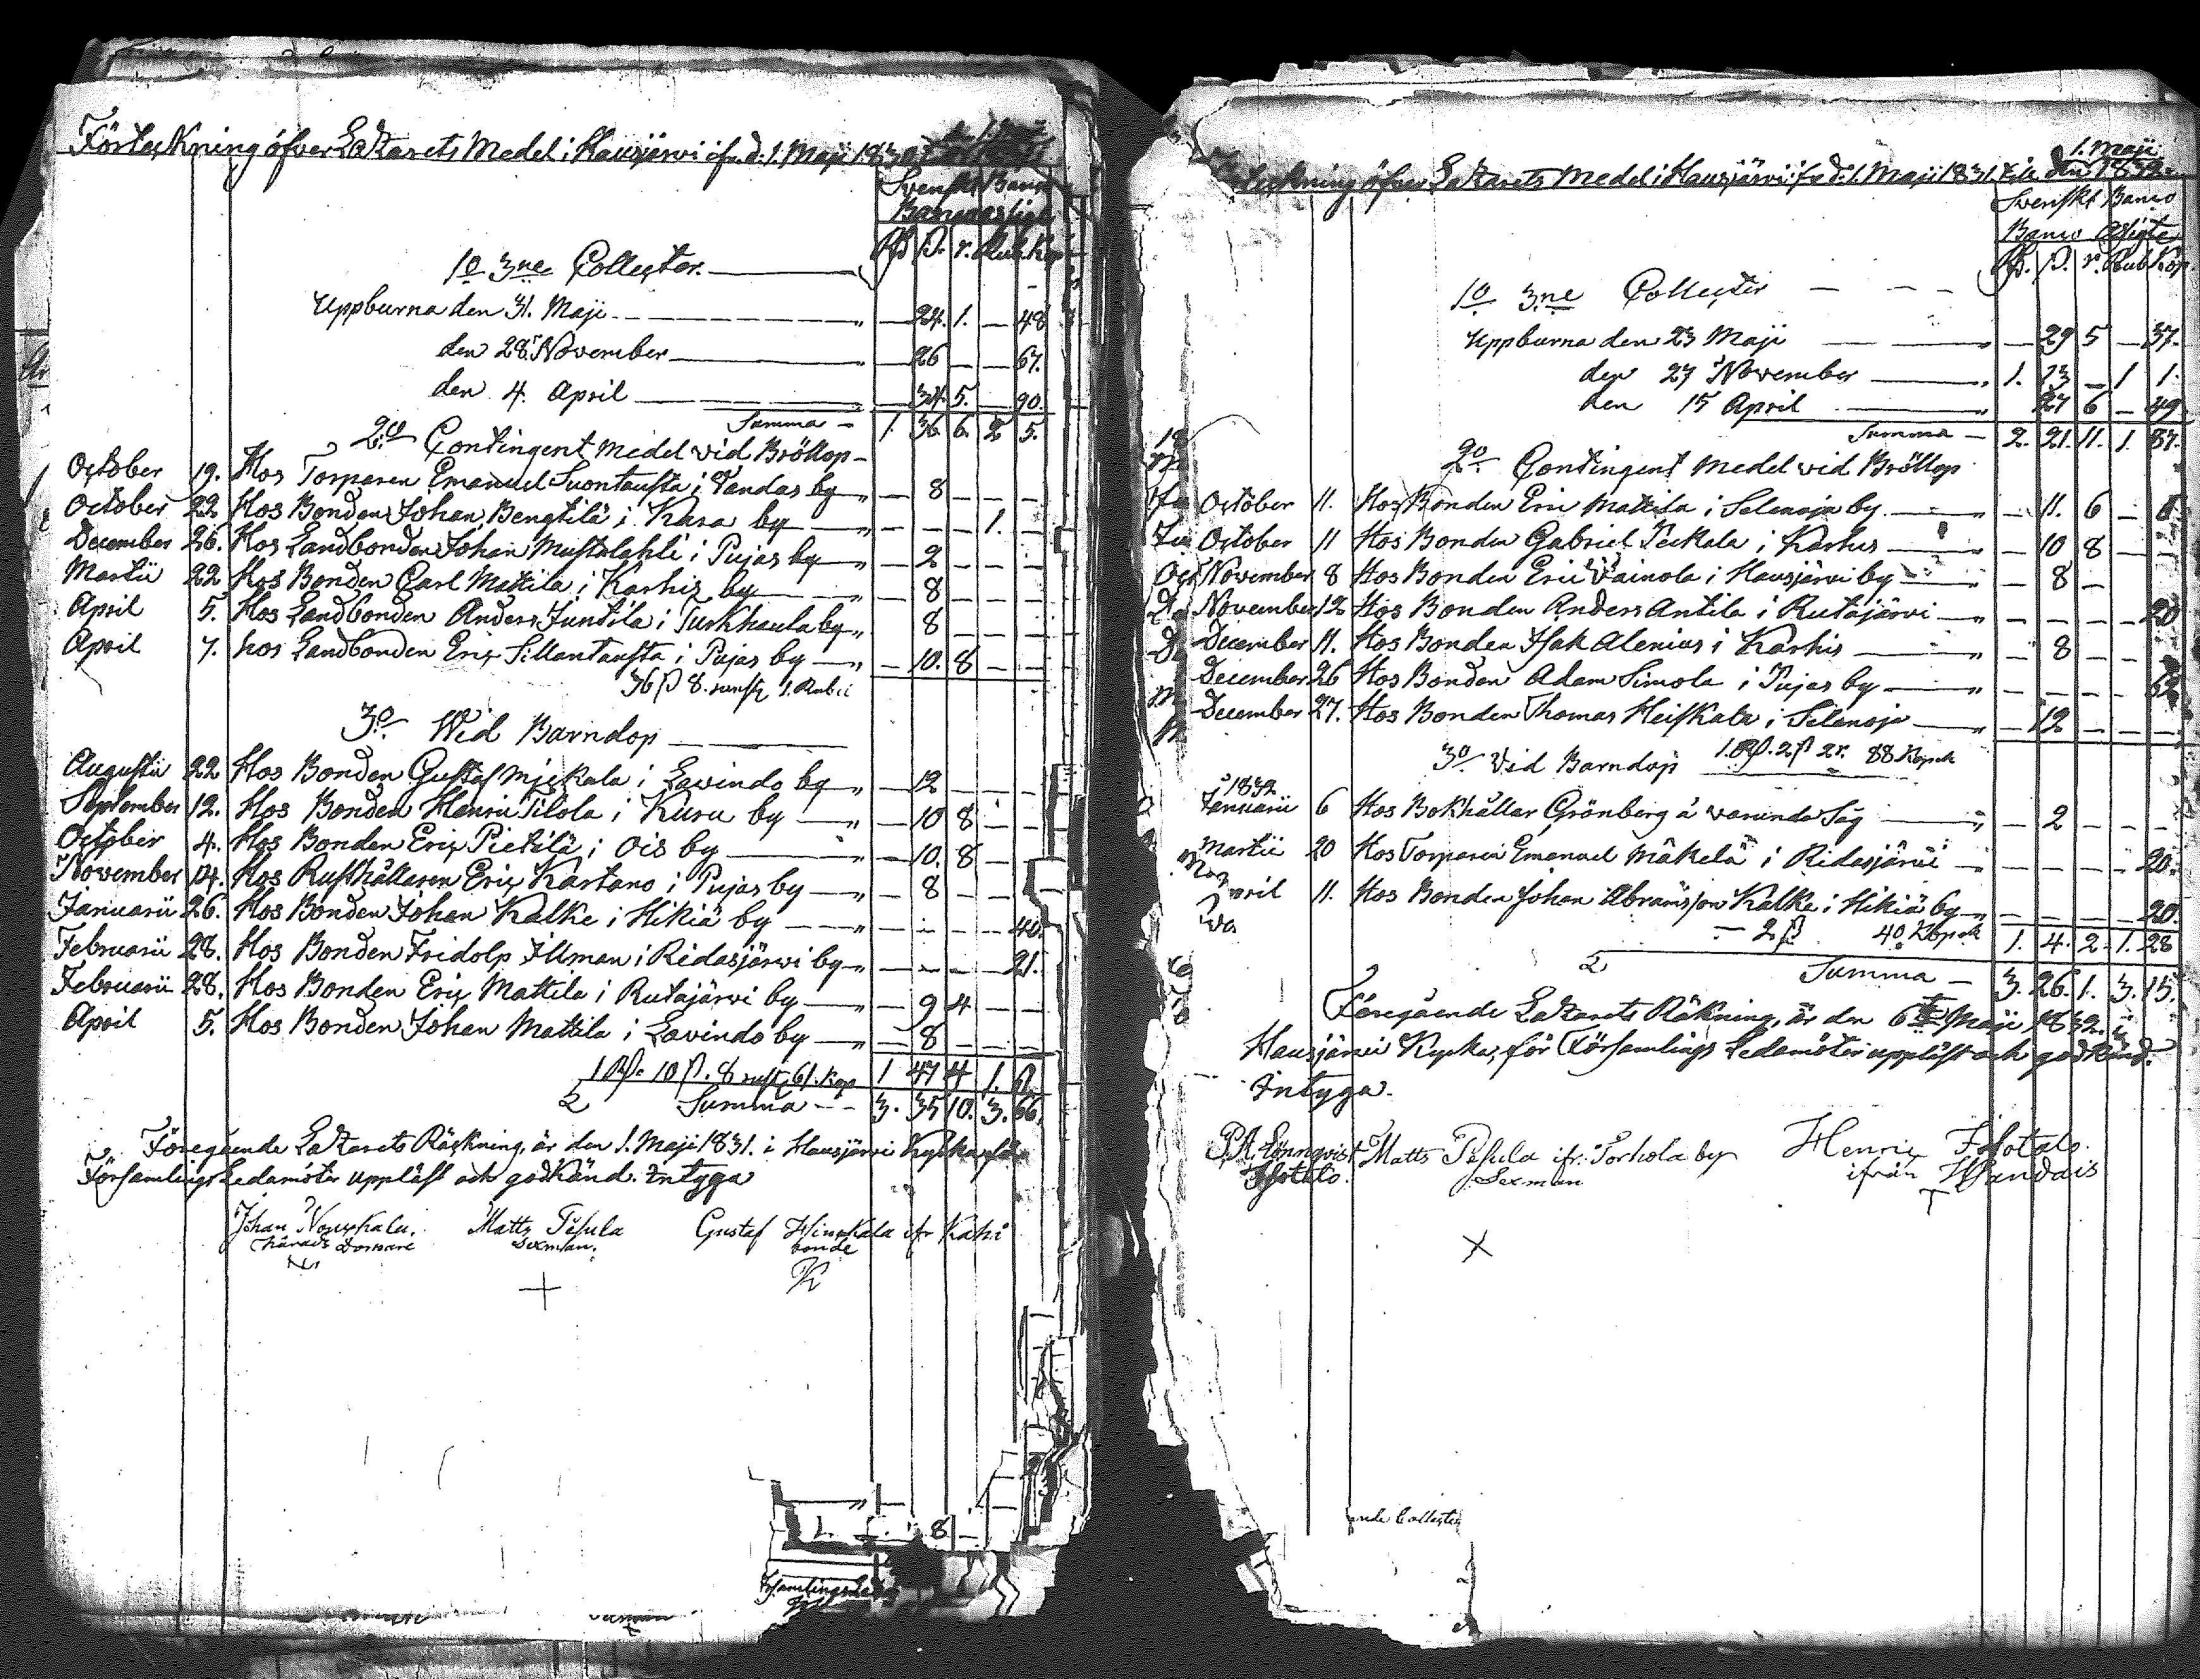 Förteckning öfver Lazarets Medel i Hausjärvi ifr. d. 1. Maji 1830
Svenskt Banco
R:d. s. r. Rub. Kop.
1o 3ne Collecter
Uppburna den 31. Maji 24. 1. 48
den 28. November 26 67.
den 4. April 34. 5. 90.
Summa 1. 36. 6. 2 5.
2o Contingent Medel vid Bröllop
October 19. Hos Torparen Emanuel Suontausta i Vandas by 8
October 22 Hos Bonden Johan Bengtilä i Kara by 1.
December 26. Hos Landbonden Johan Mustalahti i Pujas by 2
Martii 22 Hos Bonden Carl Mattila i Karhis by 8
April 5. Hos Landbonden Anders Juntila i Turkhaula by 8
April 7. hos Landbonden Eric Sillantausta i Pujas by 10. 8
36 s 8. runst. 1. Rub:l
3o Wid Barndop
Augusti 22 Hos Bonden Gustaf Mickala i Lavindo by 12
September 12. Hos Bonden Henric Tilola i Kuru by 10 8
October 4. Hos Bonden Eric Pietilä i Ois by 10. 8
November 14. Hos Rusthållaren Eric Kartano i Pujas by 8
Januarii 26. Hos Bonden Johan Kalke i Hikiä by 40.
Februarii 28. Hos Bonden Fridolp Illman i Ridasjärvi by 21.
Februarii 28. Hos Bonden Eric Mattila i Rutajärvi by 9 4
April 5. Hos Bonden Johan Mattila i Lavindo by 8
1 Rd. 10 s. 8 runst. 61. Kop 1 47 4 1. 61
Summa 3. 35 10. 3. 66.
Föregående Lazarets Räckning, är den 1. Maji 1831. i Hausjärvi Kyrka, för
Församlings Ledamöter uppläst och godkänd. Intyga
Johan Nouskala. Matts Pesula Gustaf Hinskala ifr Kahi
Härads Domare Sexman. bonde
Förteckning öfver Lazarets Medel i Hausjärvi ifr d. 1. Maji 1831. till den 1. Maji 1832.
Svenskt Banco
R:d. s. r. Rub Kop.
1o 3ne Collecter
Uppburna den 23 Maji 29 5 37.
den 27 November 1. 13 1 1.
den 15 April 27 6 49
Summa 2. 21. 11. 1. 87.
2o Contingent Medel vid Bröllop
October 11. Hos Bonden Eric Mattila i Selenoja by 11. 6
October 11 Hos Bonden Gabriel Peckala i Karhis 10 8
November 8 Hos Bonden Eric Väinola i Hausjärvi by 8
November 12 Hos Bonden Anders Antila i Rutajärvi 20
December 11. Hos Bonden Isak Alenius i Karhis 8
December 26 Hos Bonden Adam Simola i Pujas by
December 27. Hos Bonden Thomas Heiskala i Selenoja 12
3o Vid Barndop 1. Rd. 2 s 2 r. 88 Kopek
1832
Januarii 6 Hos Bokhållar Grönberg å Vaninda Såg 2
Martii 20 Hos Torparen Emanuel Mäkelä i Ridasjärvi 20.
April 11. Hos Bonden Johan Abramsson Kalke i Hikiä by 20.
2 s 40 Kopek 1. 4. 2. 1. 28
Summa 3. 26. 1. 3. 15.
Föregående Lazarets Räkning, är den 6te Maji 1832. i
Hausjärvi Kyrka, för Församlings Ledamöter uppläst och godkänd.
Intyga.
P. A. Lönnqvist Matts Pesula ifr. Torhola by Henric Isotalo
Isotalo. Sexman ifrån Wandais